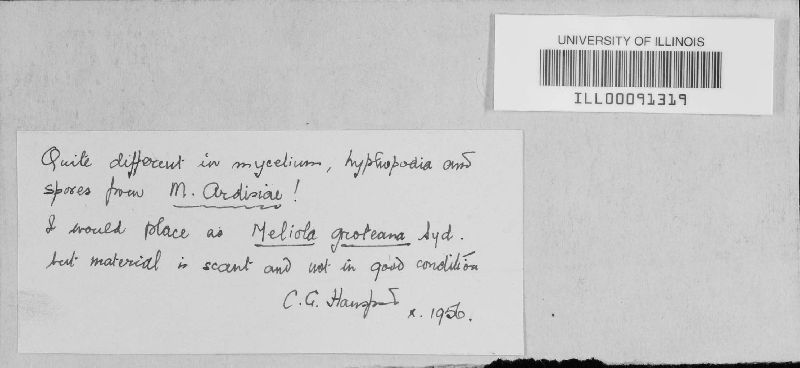 UNIVERSITY OF ILLINOIS
ILL00091319
Quite different in mycelium, hyphopodia and
spores from M. Ardisiae!
I would place as Meliola groteana Syd.
but material is scant and not in good condition
C.G. Hansford
x. 1956.